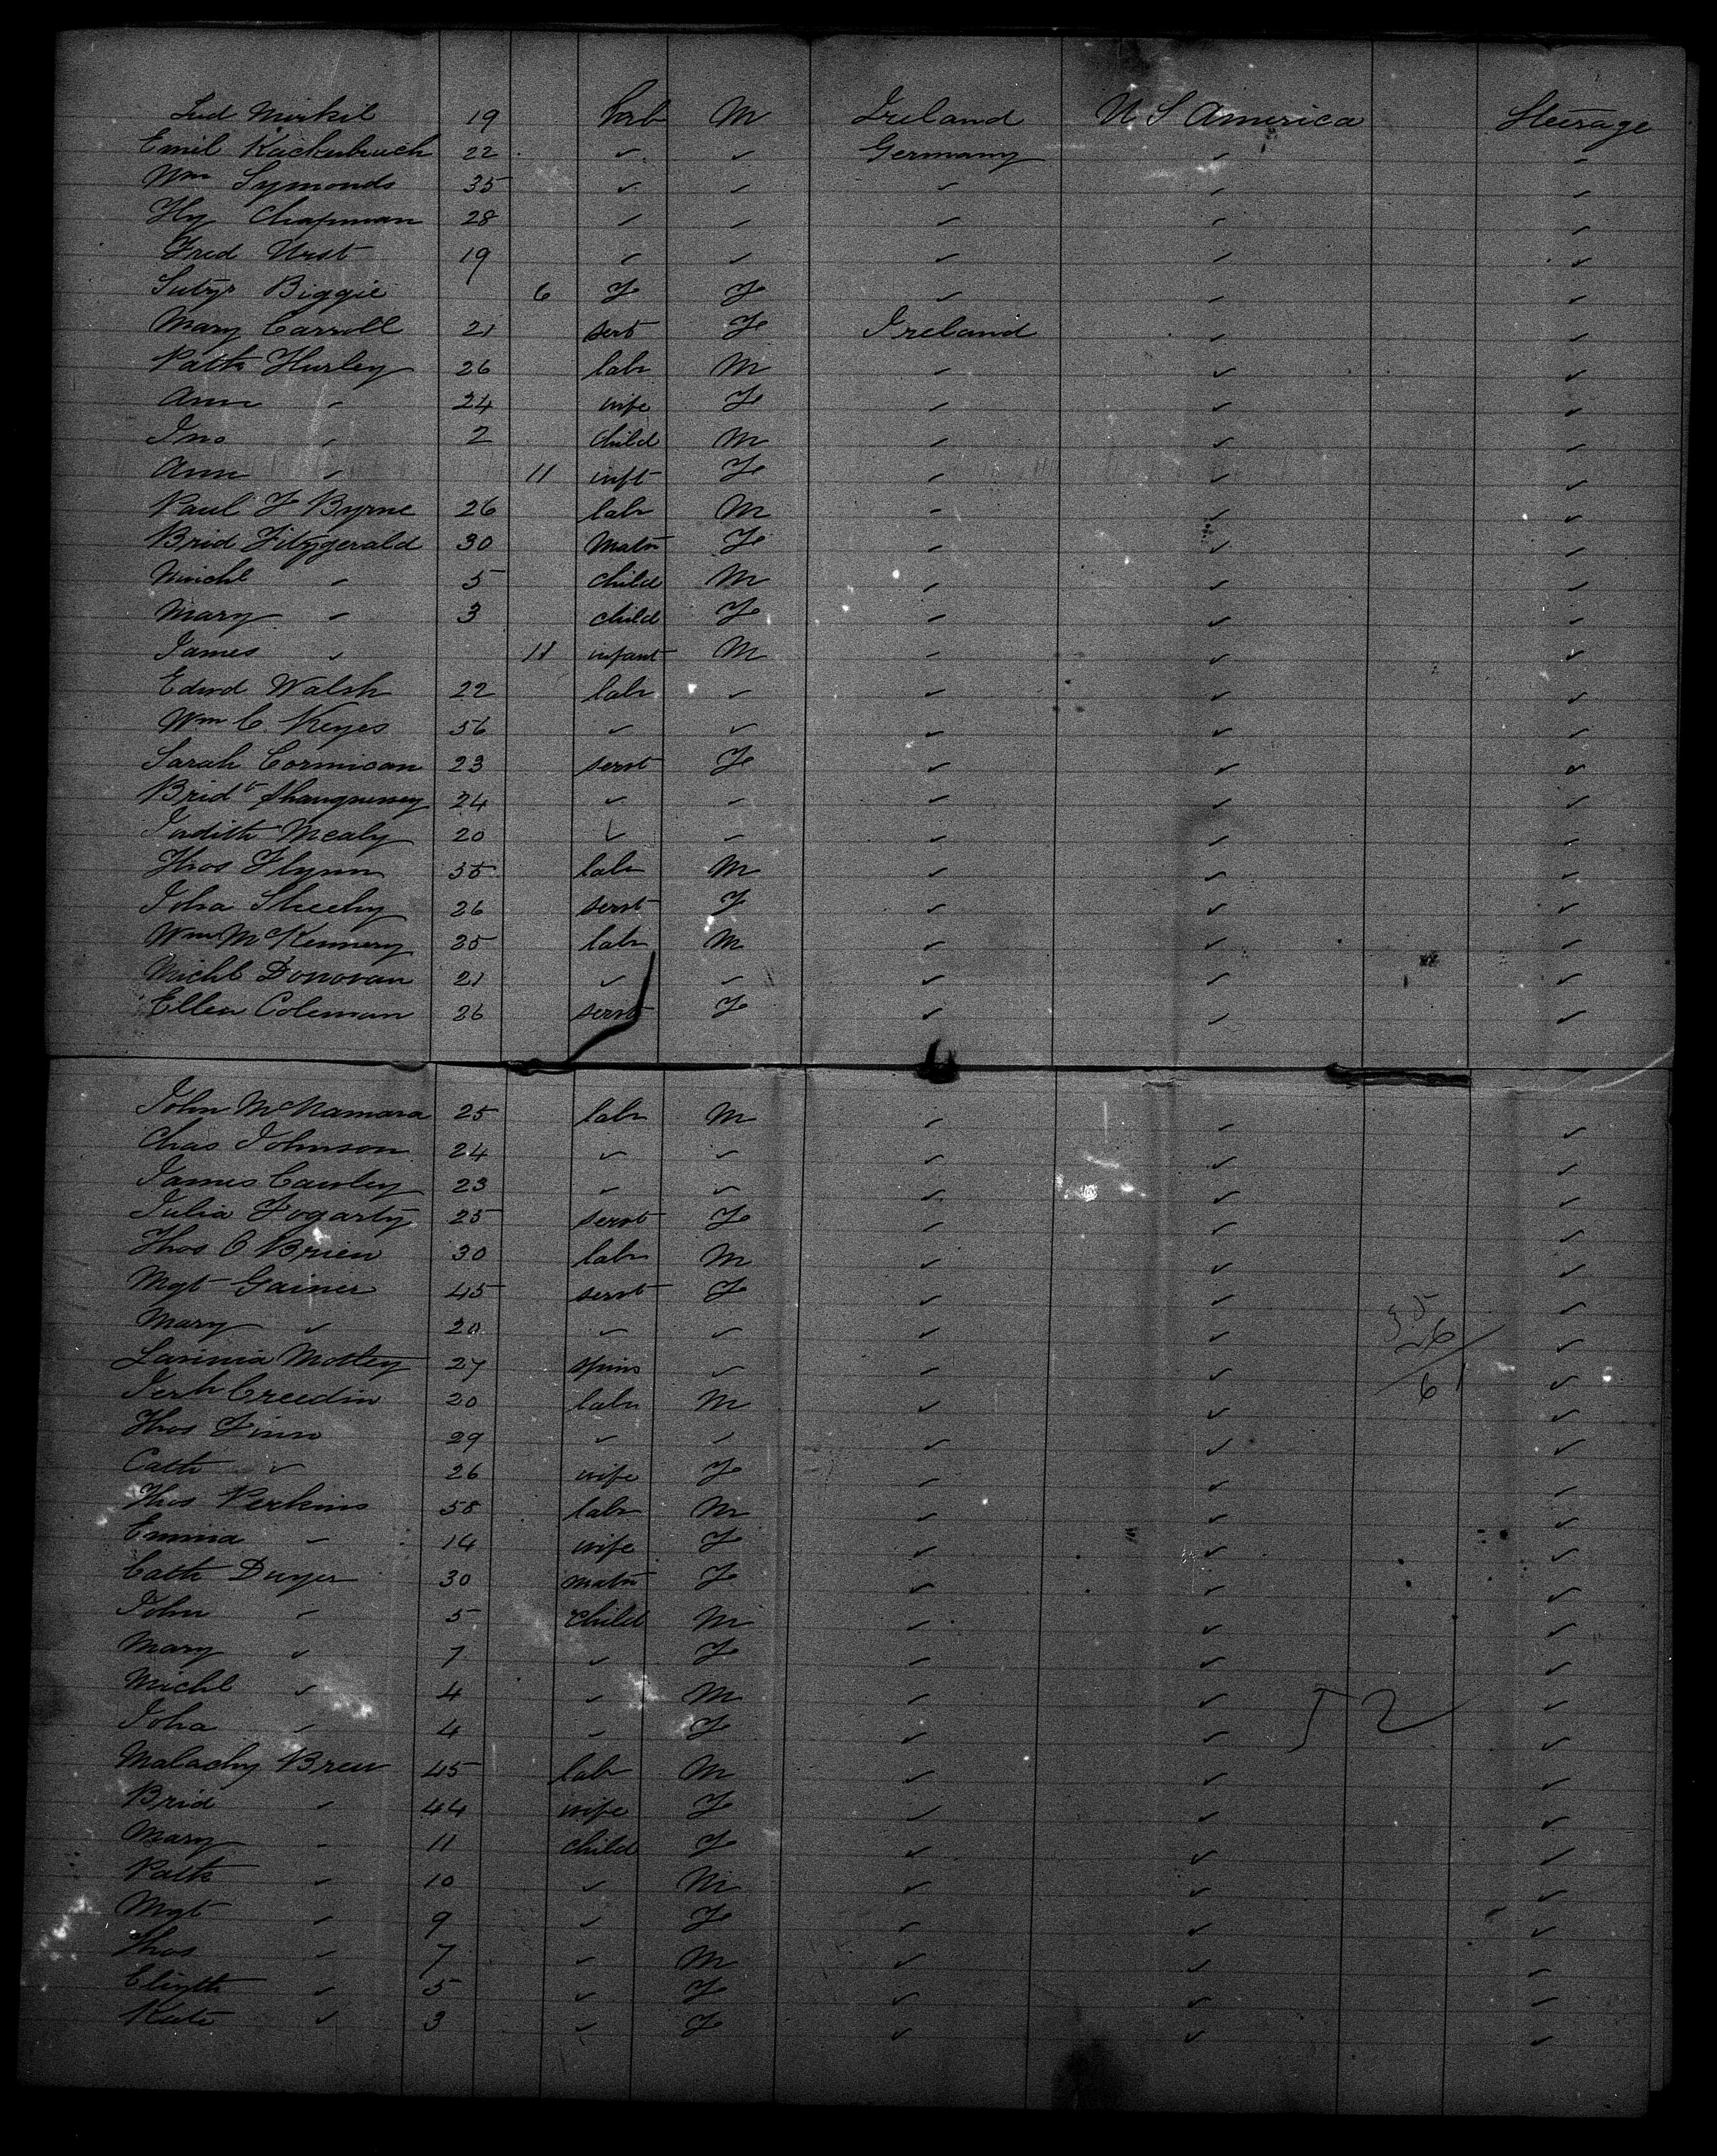 Lud Mirkil 19 labr M Ireland U S America Steerage
Emil Kackerbeuch 22 ✓ ✓ Germany ✓ ✓
Wm Symonds 35 ✓ ✓ ✓ ✓ ✓
Hy Chapman 28 ✓ ✓ ✓ ✓ ✓
Fred Urst 19 ✓ ✓ ✓ ✓ ✓
Biggie 6 F F ✓ ✓ ✓
Mary Carroll 21 sert F Ireland ✓ ✓
Patk Hurley 26 labr M ✓ ✓ ✓
Ann ✓ 24 wife F ✓ ✓ ✓
Jno ✓ 2 child M ✓ ✓ ✓
Ann ✓ 11 inft F ✓ ✓ ✓
Paul F Byrne 26 labr M ✓ ✓ ✓
Brid Fitzgerald 30 Matn F ✓ ✓ ✓
Michl ✓ 5 child M ✓ ✓ ✓
Mary ✓ 3 child F ✓ ✓ ✓
James ✓ 11 infant M ✓ ✓ ✓
Edwd Walsh 22 labr ✓ ✓ ✓ ✓
Wm C. Keyes 56 ✓ ✓ ✓ ✓ ✓
Sarah Cormican 23 servt F ✓ ✓ ✓
Bridt Shaugnessy 24 ✓ ✓ ✓ ✓ ✓
Judith Mealy 20 ✓ ✓ ✓ ✓ ✓
Thos Flynn 35 labr M ✓ ✓ ✓
Joha Sheehy 26 servt F ✓ ✓ ✓
Wm McKennery 25 labr M ✓ ✓ ✓
Michl Donovan 21 ✓ ✓ ✓ ✓ ✓
Ellen Coleman 26 servt F ✓ ✓ ✓
John McNamara 25 labr M ✓ ✓ ✓
Chas Johnson 24 ✓ ✓ ✓ ✓ ✓
James Cawley 23 ✓ ✓ ✓ ✓ ✓
Julia Fogarty 25 servt F ✓ ✓ ✓
Thos O Brien 30 labr M ✓ ✓ ✓
Mgt Gainer 45 servt F ✓ ✓ ✓
Mary ✓ 20 ✓ ✓ ✓ ✓ 35 26 ✓
Lavinia Motley 27 spins ✓ ✓ ✓ 61 ✓
Jerh Creedin 20 labr M ✓ ✓ ✓
Thos Finn 29 ✓ ✓ ✓ ✓ ✓
Cath ✓ 26 wife F ✓ ✓ ✓
Thos Perkins 58 labr M ✓ ✓ ✓
Emma ✓ 14 wife F ✓ ✓ ✓
Cath Dwyer 30 matn F ✓ ✓ ✓
John ✓ 5 child M ✓ ✓ ✓
Mary ✓ 7 ✓ F ✓ ✓ ✓
Michl ✓ 4 ✓ M ✓ ✓ 52 ✓
Joha ✓ 4 ✓ F ✓ ✓ ✓
Malachy Brew 45 labr M ✓ ✓ ✓
Brid ✓ 44 wife F ✓ ✓ ✓
Mary ✓ 11 child F ✓ ✓ ✓
Patk ✓ 10 ✓ M ✓ ✓ ✓
Mgt ✓ 9 ✓ F ✓ ✓ ✓
Thos ✓ 7 ✓ M ✓ ✓ ✓
Elizth ✓ 5 ✓ F ✓ ✓ ✓
Kate ✓ 3 ✓ F ✓ ✓ ✓